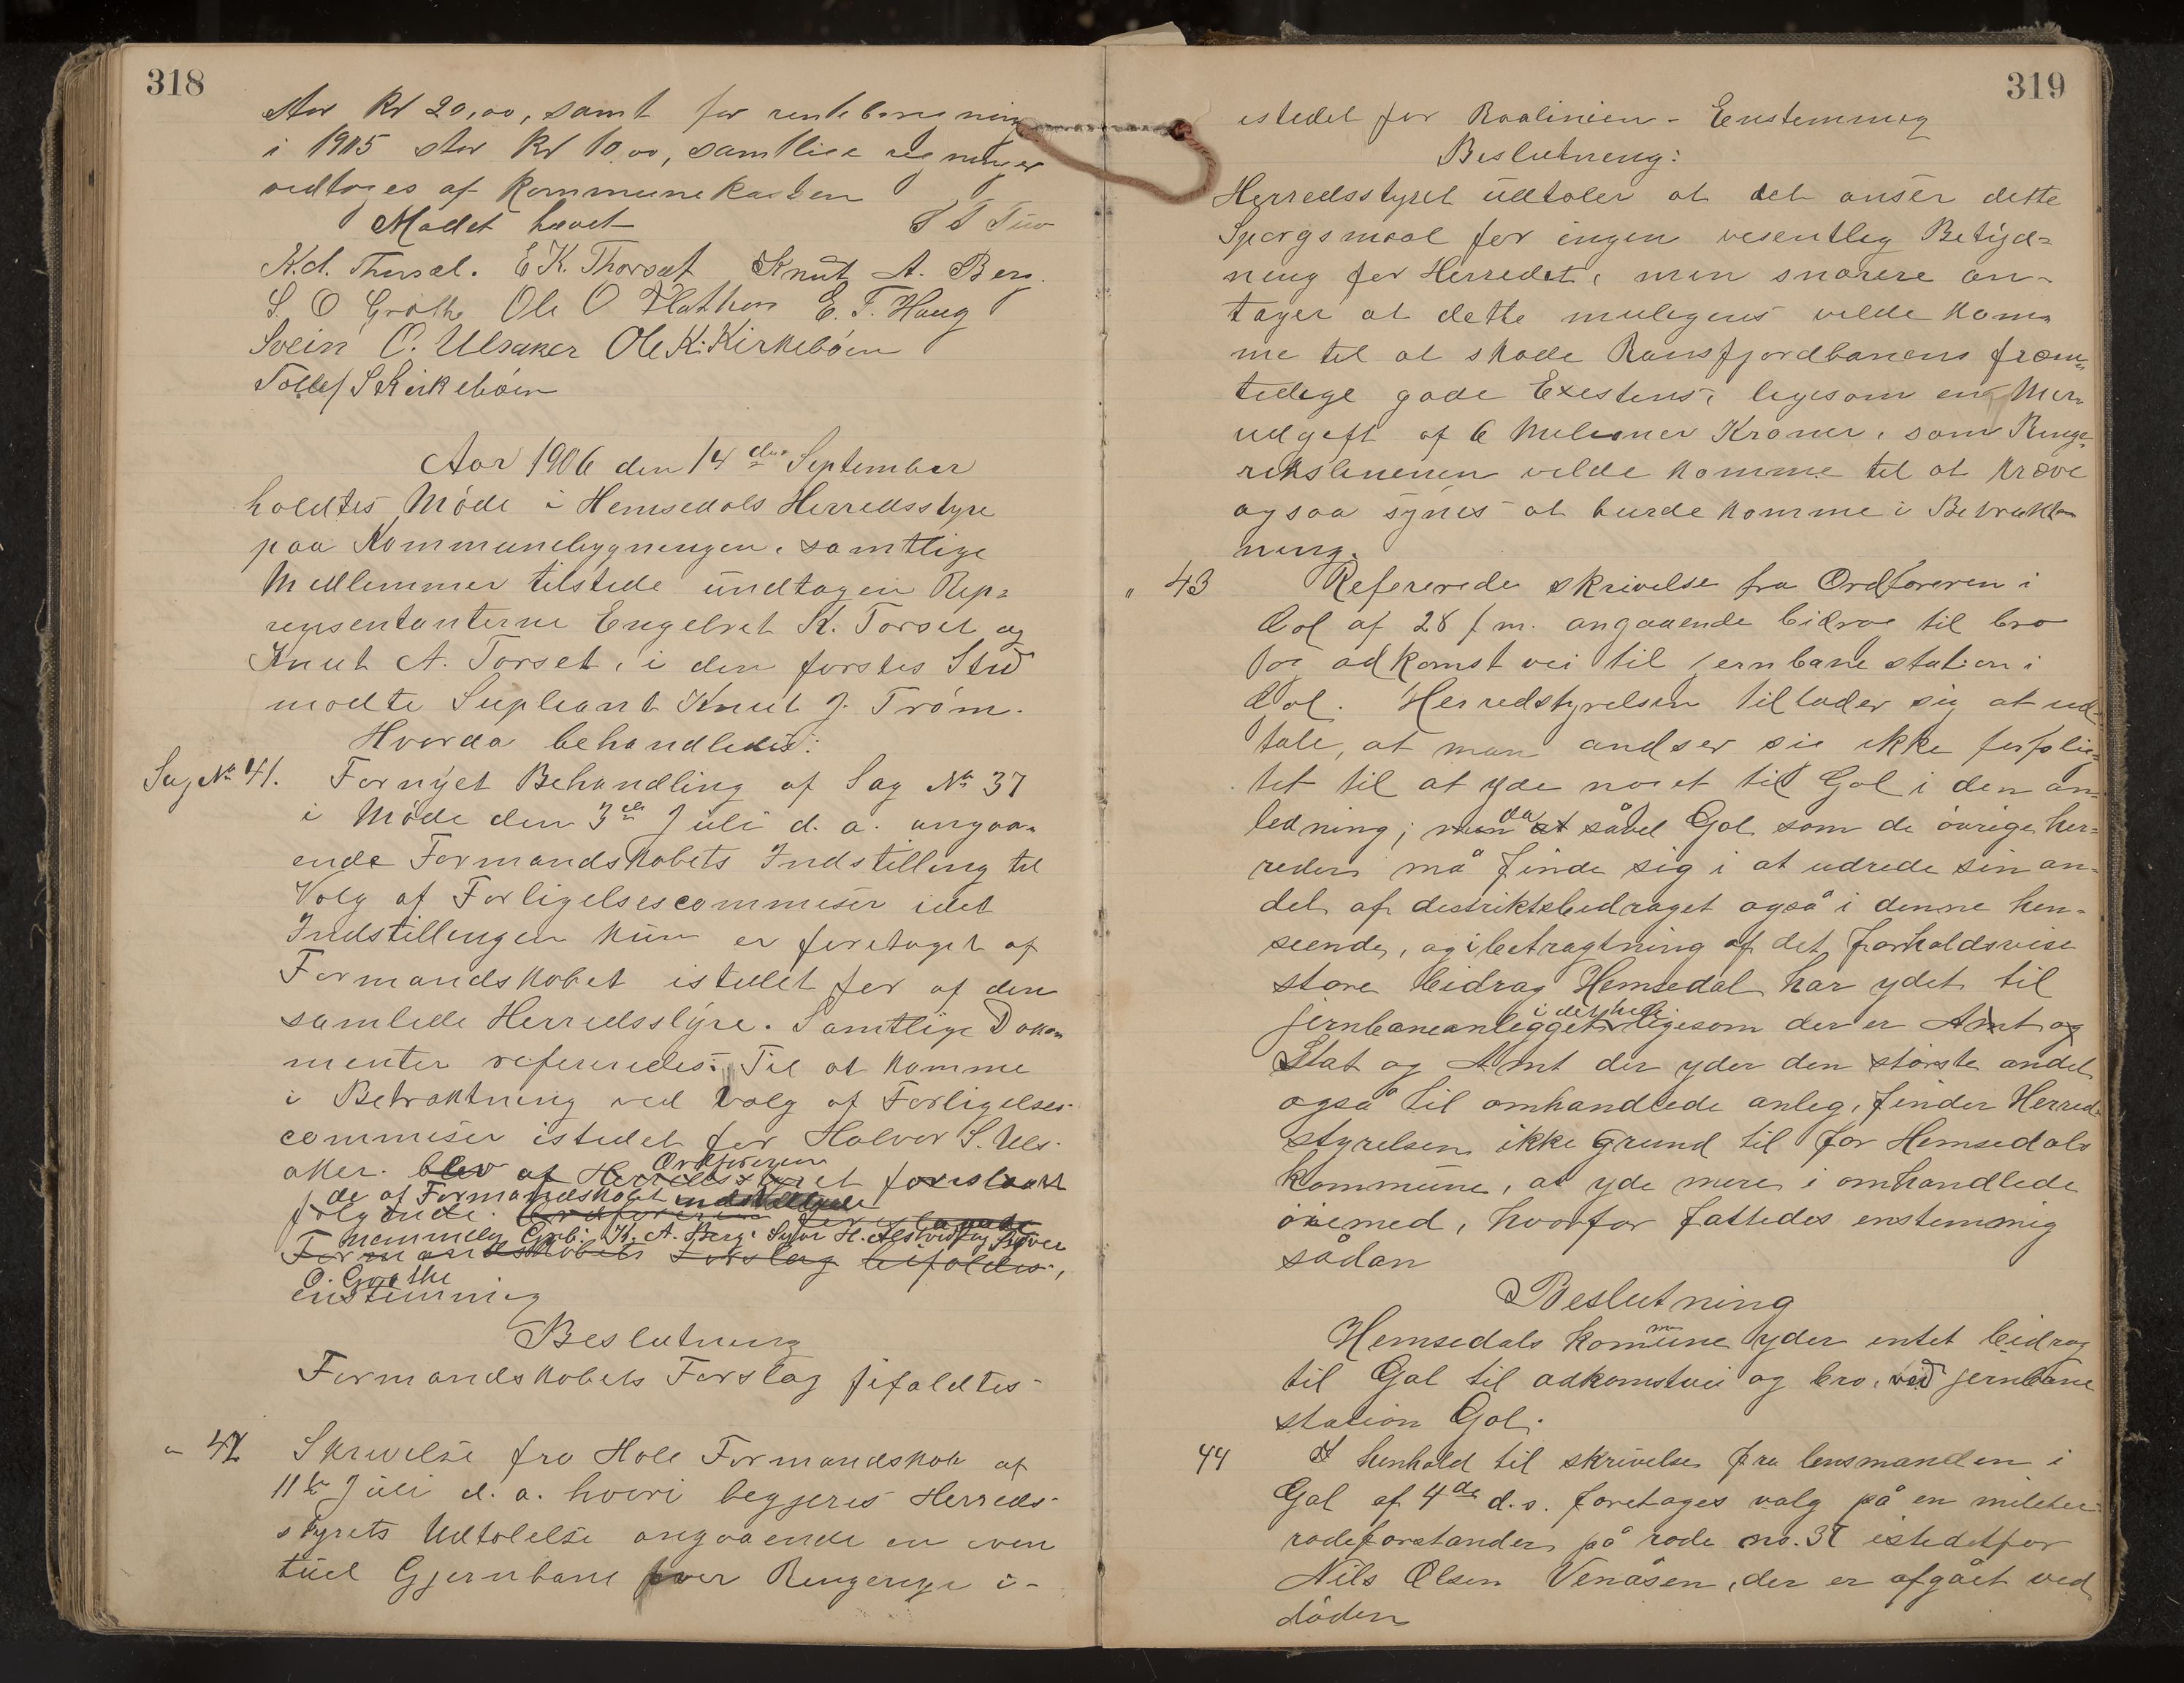 318
stor Kr 20,00, samt for renteberegning
i 1905 stor Kr 10,00, samtlige regninger
vedtoges af Kommunekassen
Mødet hævet T T Tuv
K.A. Thorset. E K. Thorset Knut A. Berg.
S. O Grøthe Ole O Flathen E. T. Haug
Svein O. Ulsaker Ole K. Kirkebøen
Tollef S Kirkebøen
Aar 1906 den 14de September
holdtes Møde i Hemsedals Herredsstyre
paa Kommunebygningen, samtlige
Medlemmer tilstede undtagen Rep=
resentanterne Engebret K. Torset og
Knut A. Torset, i den førstes Sted
mødte Supleant Knut J. Trøm.
Hvorda behandledes:
Sag No 41. Fornyet Behandling af Sag No 37
i Møde den 3de Juli d. a. angaa-
ende Formandskabets Indstilling til
Valg af Forligelsescommisær idet
Indstillingen kun er foretaget af
Formandskabet istedet for af den
samlede Herredsstyre. Samtlige Doku-
menter refereredes: Til at komme
i Betraktning ved Valg af Forligelses-
commisær istedet for Halvor S. Uls-
aker. blev af Herredsstyret foreslaaet
Ordføreren
de af Formandskabet indstillede
følgende. Ordføreren foreslagede
Nemmelig Emb: K. A. Berg, Syver H. Ålstveit og Syver
Formandskabets Forslag bifaldes,
O. Grøthe
enstemmig
Beslutning
Formandskabets Forslag bifaldtes
" 42 Skrivelse fra Hole Formandskab af
11te Juli d. a. hvori begjeres Herreds-
styrets Udtalelse angaaende en even
tuel Gjernbane over Ringerige i-
319
istedet for Roalinien - Enstemmig
Beslutning:
Herredsstyret udtaler at det anser dette
Spørgsmaal for ingen vesentlig Betyd=
ning for Herredet, men snarere an-
tager at dette muligens vilde kom-
me til at skade Ransfjordbanens frem-
tidige gode Existens, ligesom en Mer-
udgift af 6 Milioner Kroner, som Ringe-
rikslinenen vilde komme til at kræve
ogsaa synes at burde komme i Betrakt-
ning.
" 43 Refererede skrivelse fra Ordføreren i
Gol af 28 f.m. angaaende bidrag til bro
og adkomstvei til jernbanestation i
Gol. Herredstyrelsen tillader sig at ud-
tale, at man andser sig ikke forplig-
tet til at yde noget til Gol i den an-
ledning; men da at såvel Gol som de øvrige her-
reder må finde sig i at udrede sin an-
del af distriktsbidraget også i denne hen-
seende, og i betragtning af det forholdsvise
store bidrag Hemsedal har ydet til
jernbaneanlegget i det hele ligesom der er Amt og
Stat og Amt der yder den største andel
også til omhandlede anleg, finder Herred-
styrelsen ikke grund til for Hemsedals
kommune, at yde mere i omhandlede
øiemed, hvorfor fattedes enstemmig
sådan
Beslutning
Hemsedals kommune yder intet bidrag
til Gol til adkomstvei og bro, ved jernbane
station Gol.
44 I henhold til skrivelse fra lensmanden i
Gol af 4de d.s. foretages valg på en militær
rodeforstander på rode no. 37 istedetfor
Nils Olsen Venåsen, der er afgået ved
døden